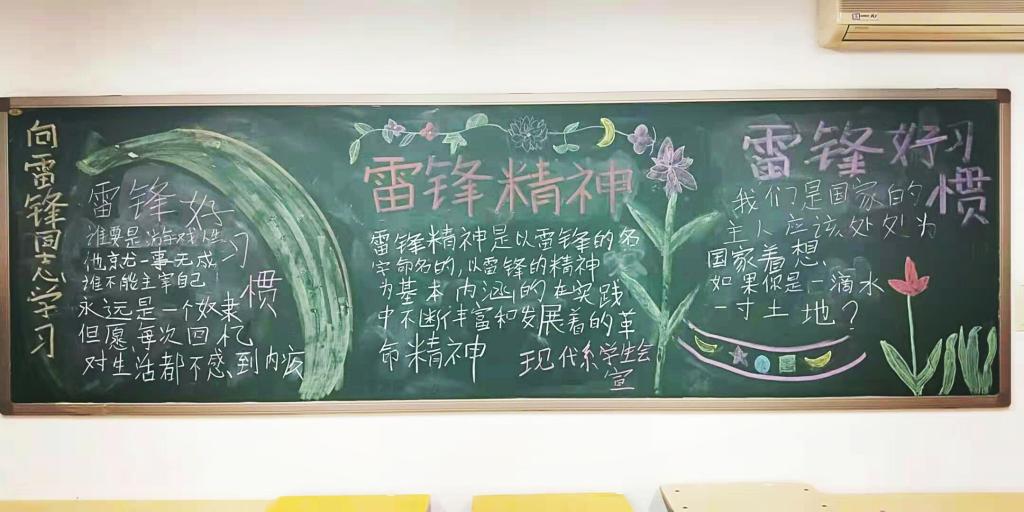 向雷锋同志学习
雷锋好习惯
谁要是游戏人生
他就一事无成
谁不能主宰自己
永远是一个奴隶
但愿每次回忆
对生活都不感到内疚
雷锋精神
雷锋精神是以雷锋的名
字命名的,以雷锋的精神
为基本内涵的在实践
中不断丰富和发展着的革
命精神
现代系学生会
宣
雷锋好习惯
我们是国家的
主人应该处处为
国家着想、
如果你是一滴水
一寸土地?